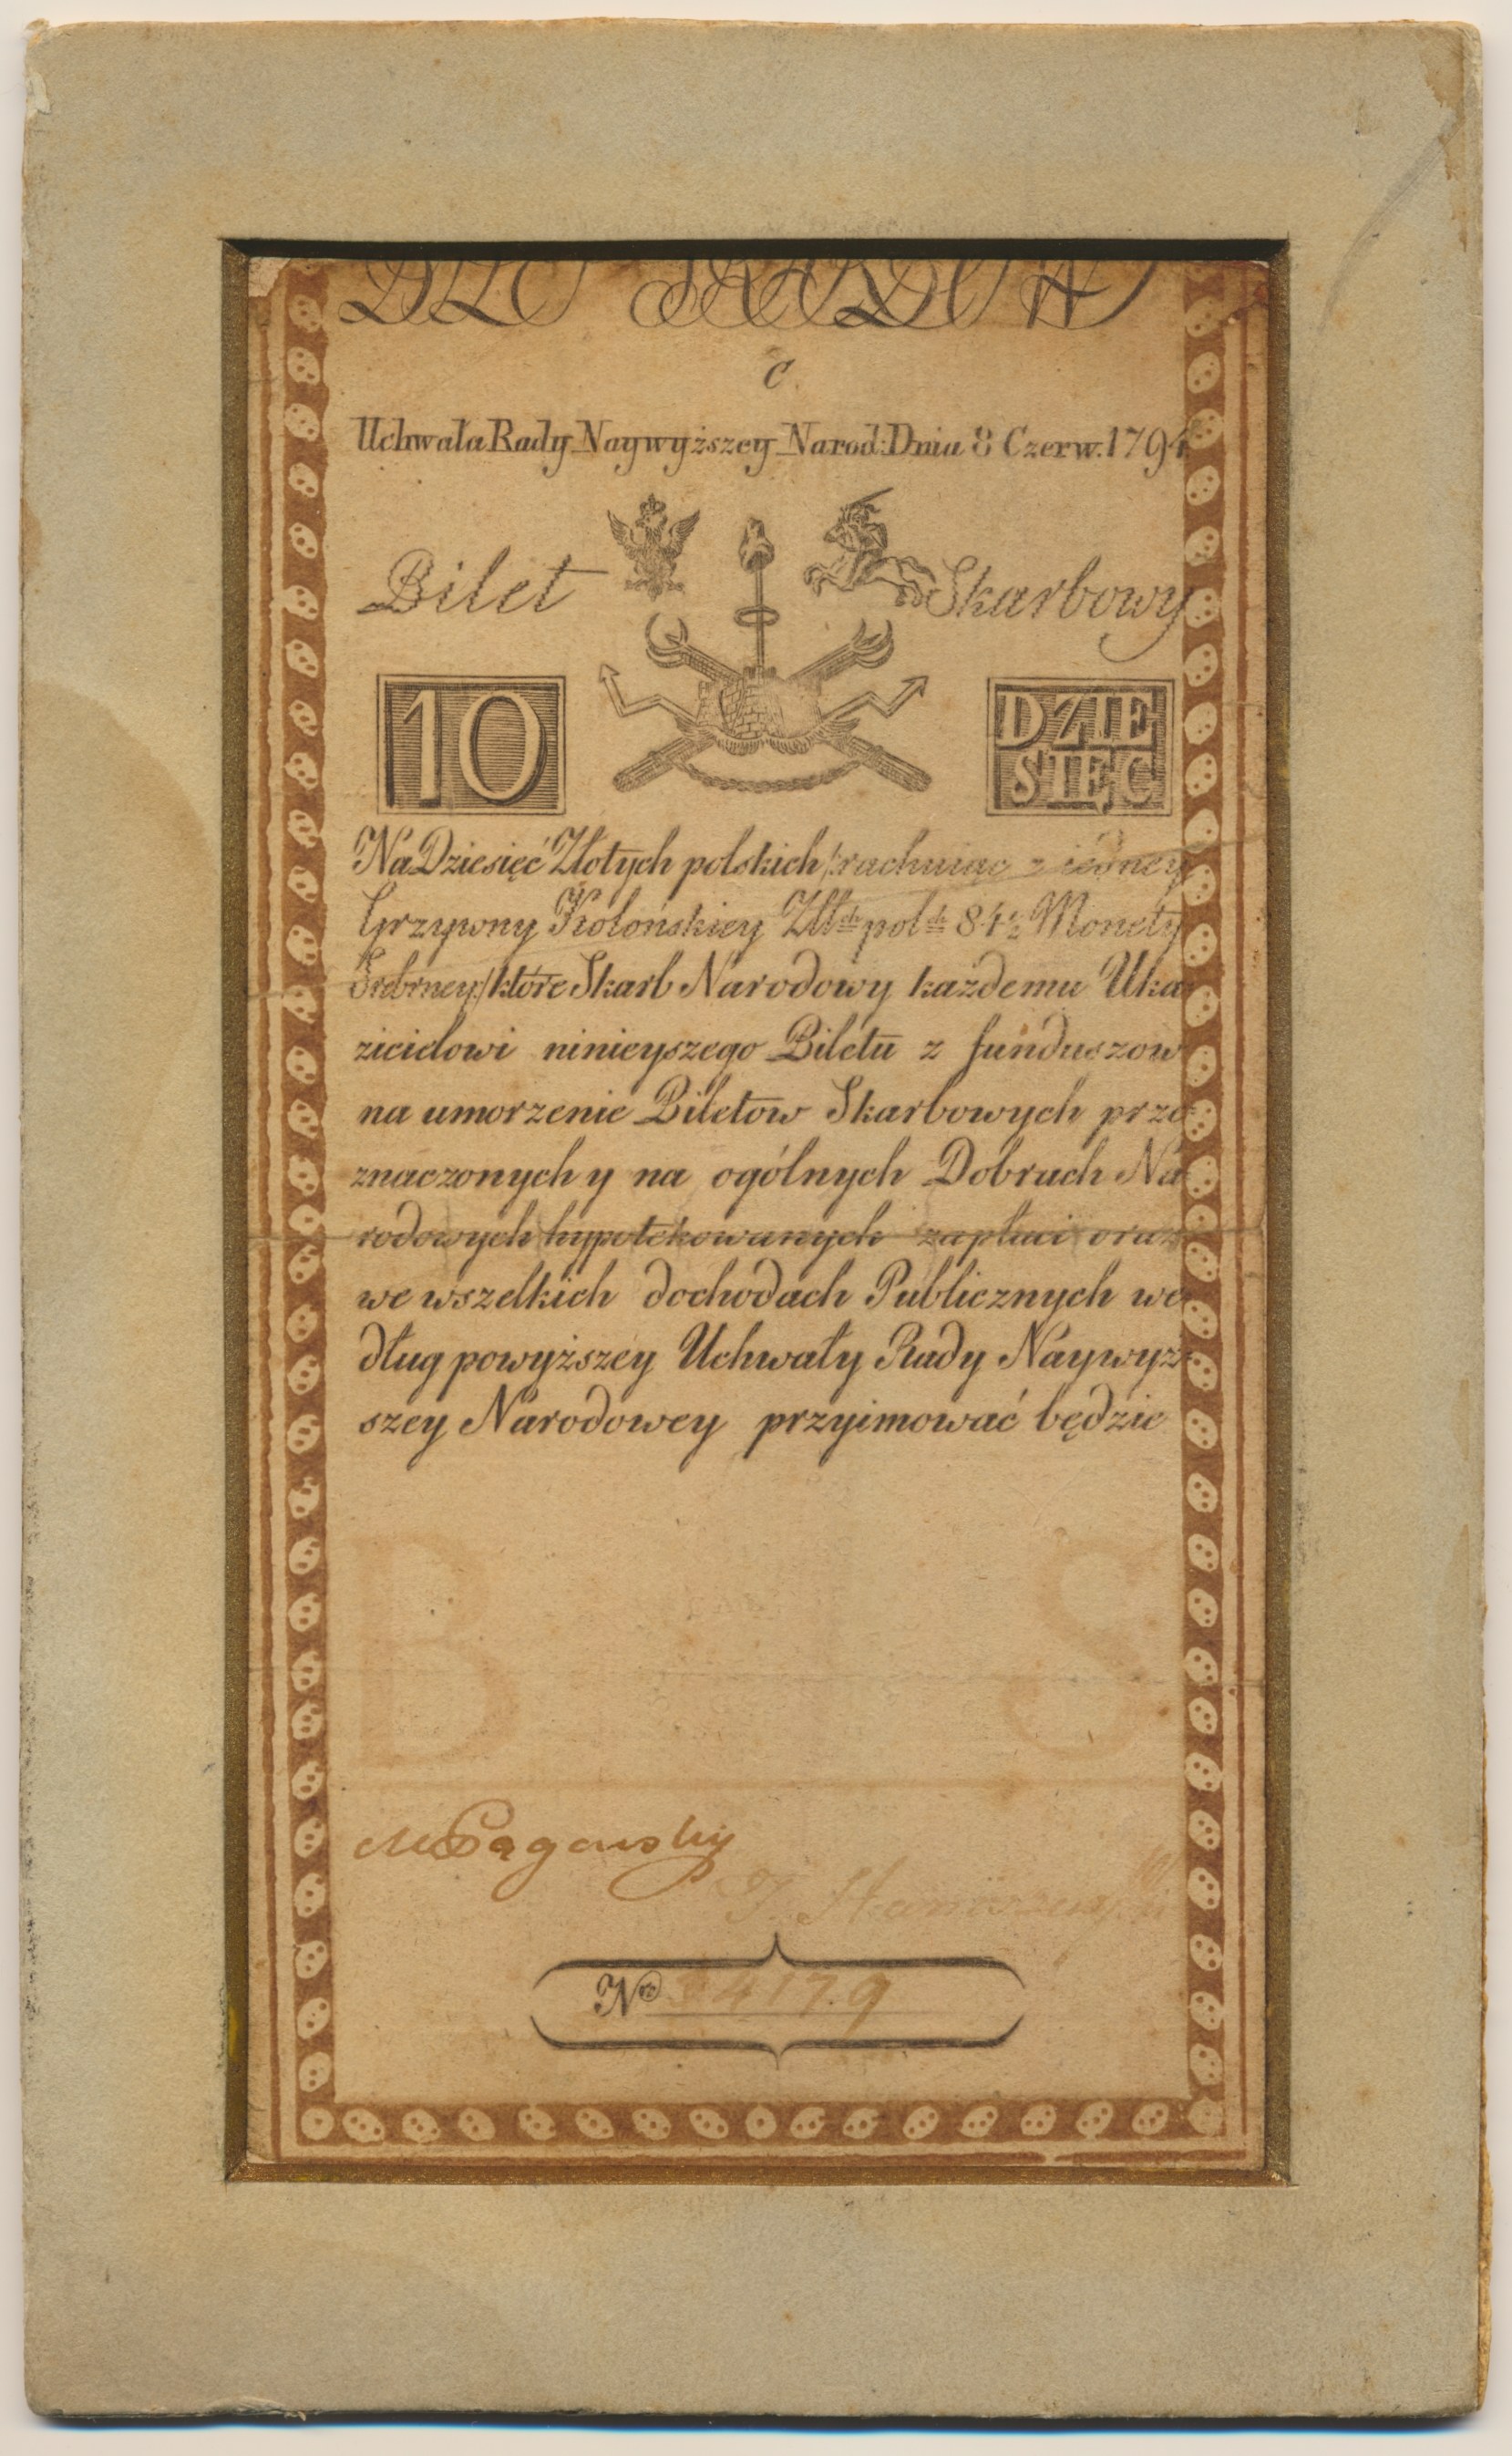 C
Uchwała Rady Naywyższey Narod: Dnia 8 Czerw. 1794
Bilet Skarbowy
10 DZIE
SIĘĆ
Na Dziesięć Złotych polskich /:rachuiąc z iedney
Grzywny Kolońskiey Zlł:ch pol:ch 84½ Monety
Srebrney:/ które Skarb Narodowy każdemu Uka
zicielowi ninieyszego Biletu z funduszow
na umorzenie Biletow Skarbowych prze
znaczonych y na ogólnych Dobrach Na
rodowych hypotekowanych zapłaci oraz
we wszelkich dochodach Publicznych we
dług powyższey Uchwały Rady Naywyż
szey Narodowey przyimować będzie
B S
M Pągowsky
Nro 417.9